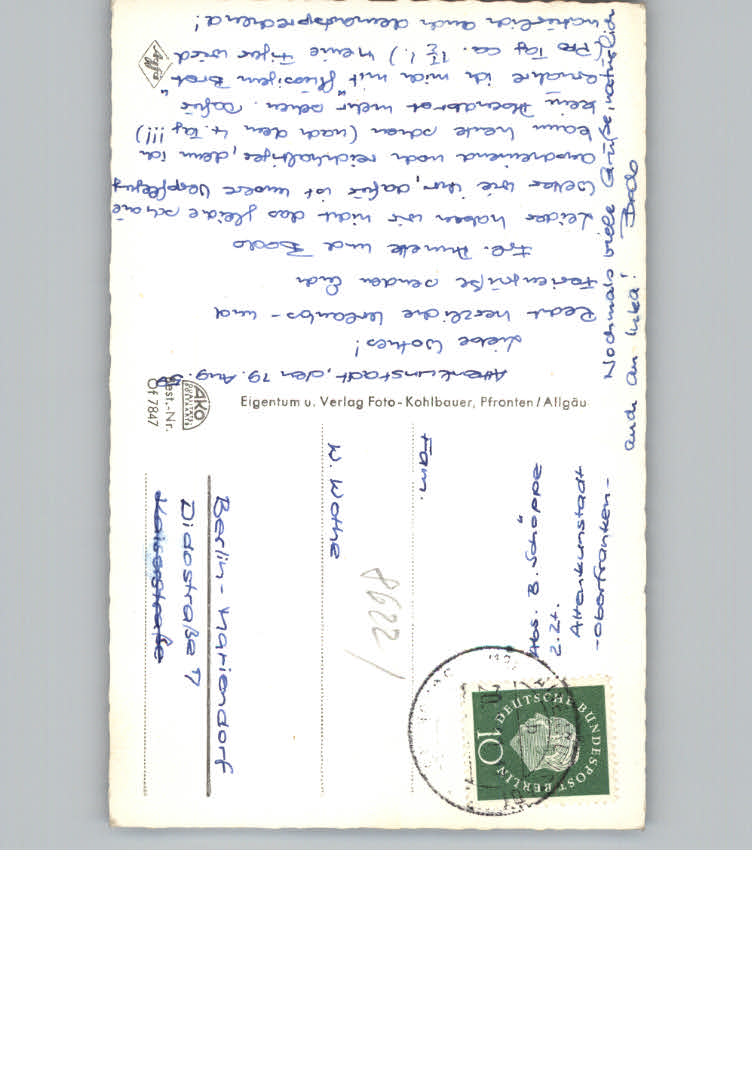 Altenkunstadt, den 19. Aug. 59
Liebe Wothes!
Recht herzliche Urlaubs- und
Feriengrüße senden Euch
Frl. Annette und Bodo
Leider haben wir nicht das gleiche schöne
Wetter wie ihr, dafür ist unsere Verpflegung
ausreichend und reichhaltiger, denn ich
kann heute schon (nach dem 4. Tag !!!)
kein Abendbrot mehr sehen. Dafür
ernähre ich mich mit "flüssigem Brot"
(Pro Tag ca. 1½ l.) Meine Figur wird
natürlich auch dementsprechend!
Nochmals viele Grüße, natürlich
auch an Inka! Bodo
Agfa
AKO
Best.-Nr.
Of 7847
Eigentum u. Verlag Foto-Kohlbauer, Pfronten/Allgäu
Abs. B. Schöppe
z.Zt.
Altenkunstadt
-Oberfranken-
DEUTSCHE BUNDESPOST BERLIN
10
Fam.
W. Wothe
8622/
Berlin-Mariendorf
Didostraße 7
Kaiserstraße